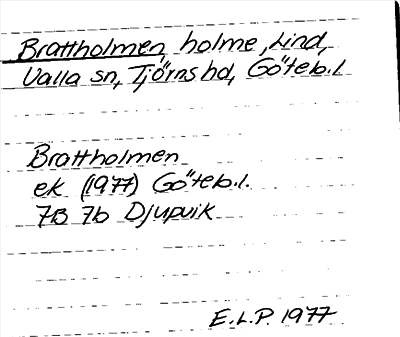 Brattholmen, holme, Lind,
Valla sn, Tjörns hd, Göteb.l
Brattholmen
ek (1977) Göteb.l.
7B 7b Djupvik
E.L.P. 1977